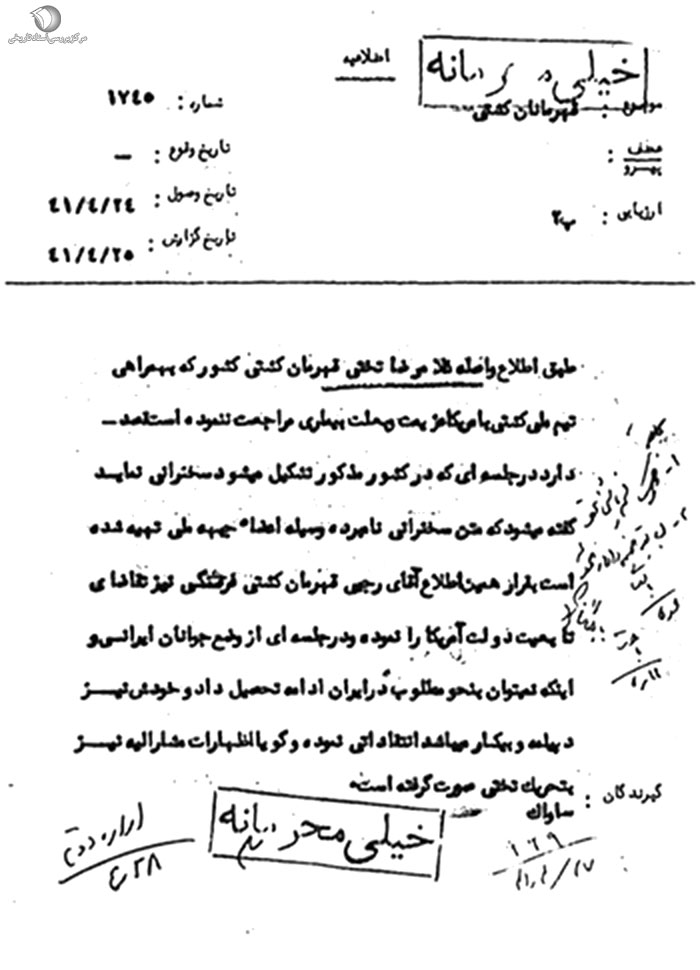 مرکز بررسی اسناد تاریخی
خیلی محرمانه
اطلاعیه
موضوع : قهرمانان کشتی
شماره : ۱۷۴۵
عطف
پیرو :
تاریخ وقوع : —
ارزیابی : ب۲
تاریخ وصول : ۴۱/۴/۲۴
تاریخ گزارش : ۴۱/۴/۲۵
طبق اطلاع واصله غلامرضا تختی قهرمان کشتی کشور که بهمراهی
تیم ملی کشتی بامریکا عزیمت و بعلت بیماری مراجعت ننموده است قصد —
دارد در جلسه ای که در کشور مذکور تشکیل میشود سخنرانی نماید
گفته میشود که متن سخنرانی نامبرده وسیله اعضاء جبهه ملی تهیه شده
است بقرار همین اطلاع آقای رجبی قهرمان کشتی فرهنگی نیز تقاضای
تابعیت دولت آمریکا را نموده و در جلسه ای از وضع جوانان ایرانی و
اینکه نمیتوان بنحو مطلوب در ایران ادامه تحصیل داد و خودش نیز
دیپلمه و بیکار میباشد انتقاداتی نموده و گویا اظهارات مشارالیه نیز
بتحریک تختی صورت گرفته است.
گیرندگان :
ساواک
خیلی محرمانه
اداره دوم
۴/۲۸
۱۶۹